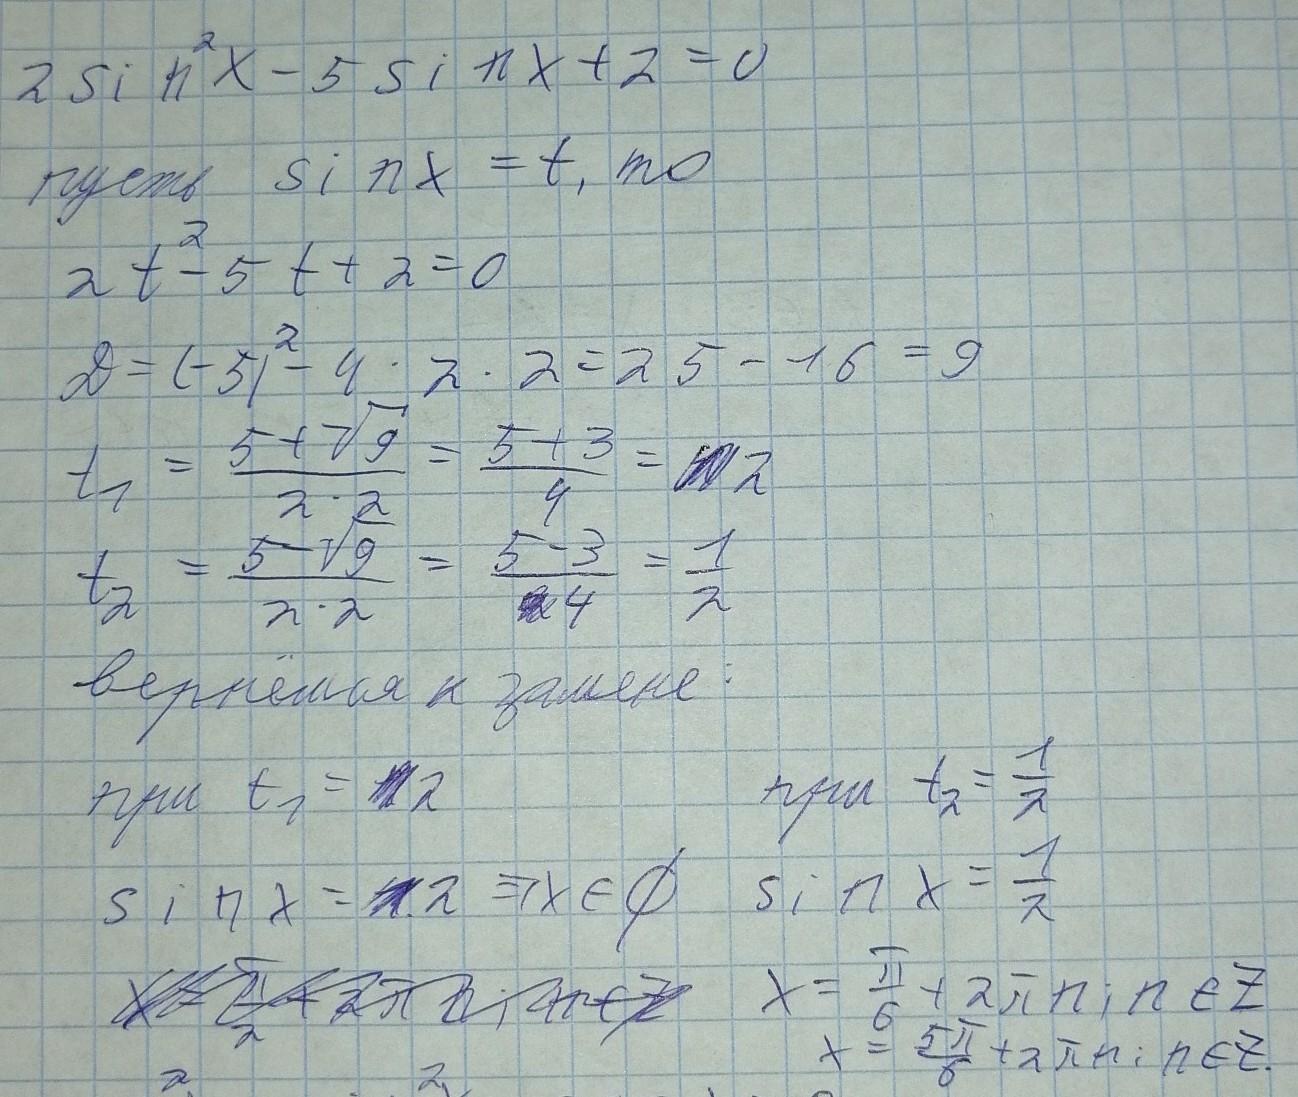 2 sin²x - 5 sin x + 2 = 0
пусть sin x = t, то
2t² - 5t + 2 = 0
D = (-5)² - 4 · 2 · 2 = 25 - 16 = 9
t₁ = (5+√9)/(2·2) = (5+3)/4 = 2
t₂ = (5-√9)/(2·2) = (5-3)/4 = 1/2
вернёмся к замене:
при t₁ = 2
при t₂ = 1/2
sin x = 2 ⇒ x ∈ ∅
sin x = 1/2
x = π/2 + 2πn; n ∈ Z
x = π/6 + 2πn; n ∈ Z
x = 5π/6 + 2πn; n ∈ Z.